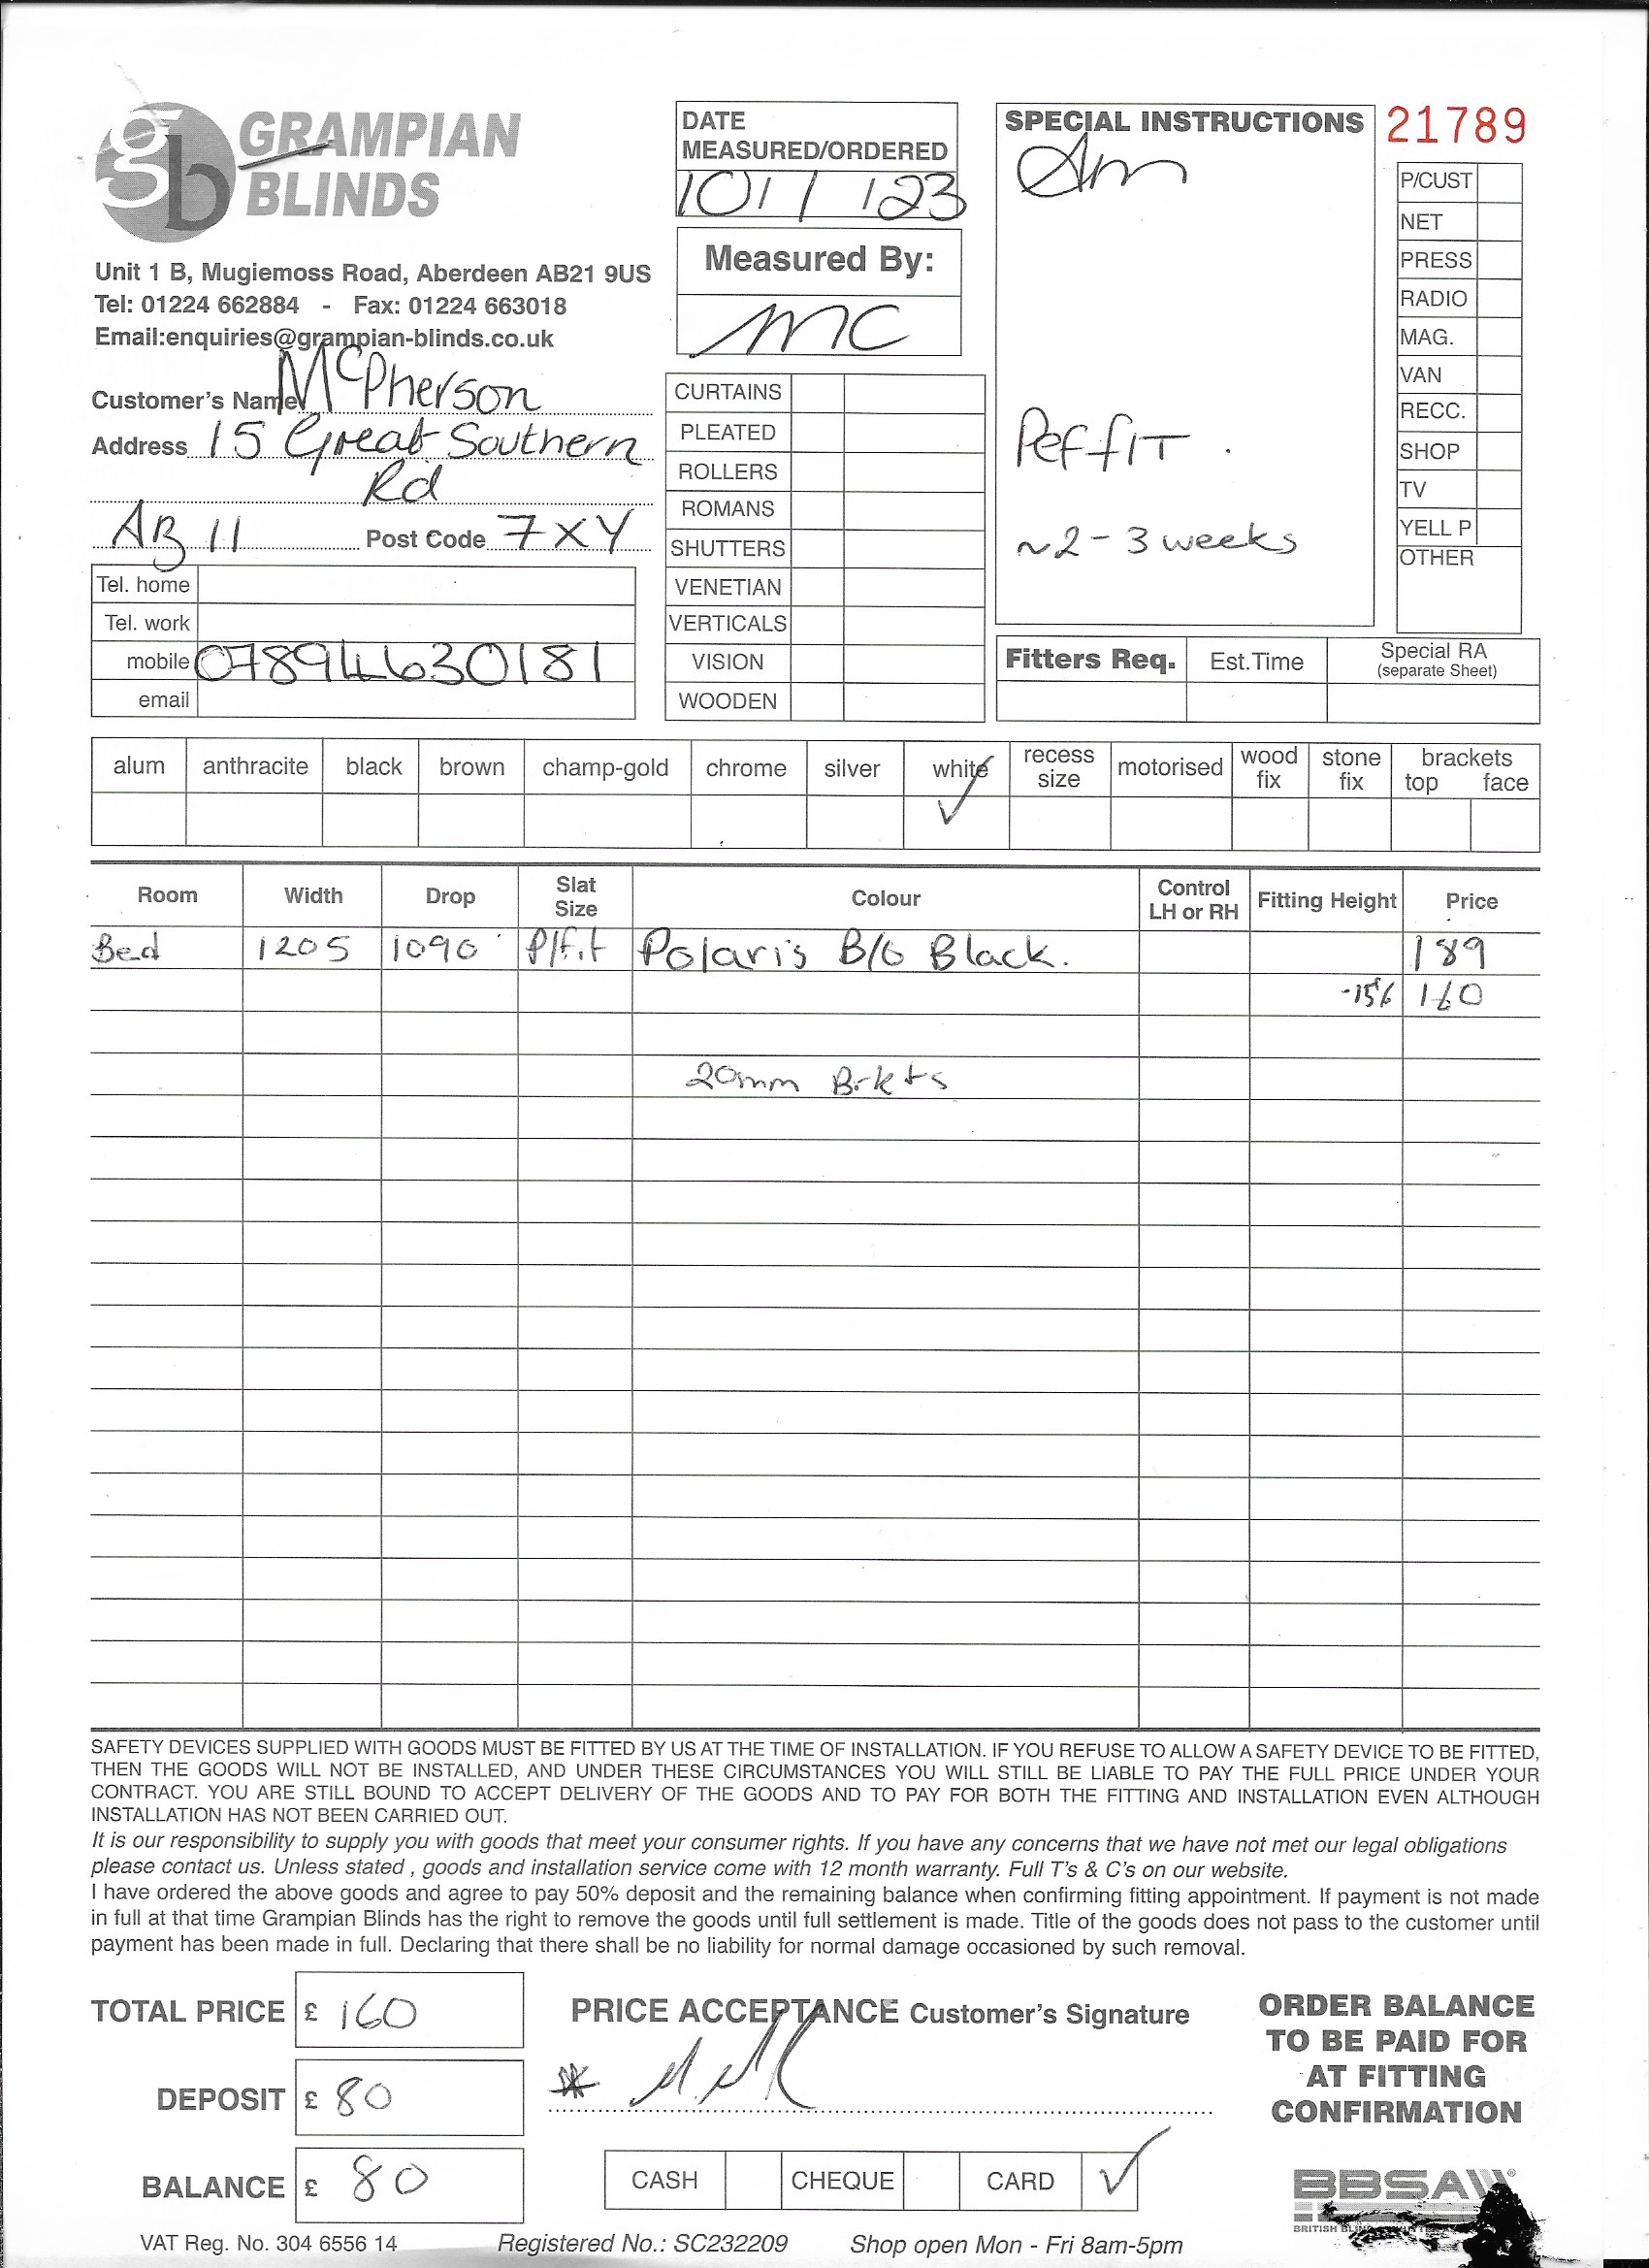 GRAMPIAN
BLINDS
Unit 1 B, Mugiemoss Road, Aberdeen AB21 9US
Tel: 01224 662884 - Fax: 01224 663018
Email:enquiries@grampian-blinds.co.uk
Customer's Name McPherson
Address 15 Great Southern
Rd
AB 11 Post Code 7XY
Tel. home
Tel. work
mobile 07894630181
email
DATE
MEASURED/ORDERED
10/1/23
Measured By:
MC
CURTAINS
PLEATED
ROLLERS
ROMANS
SHUTTERS
VENETIAN
VERTICALS
VISION
WOODEN
SPECIAL INSTRUCTIONS
Am
Per fIT.
~2-3 weeks
21789
P/CUST
NET
PRESS
RADIO
MAG.
VAN
RECC.
SHOP
TV
YELL P
OTHER
Fitters Req. Est.Time Special RA
(separate Sheet)
alum anthracite black brown champ-gold chrome silver white recess size motorised wood fix stone fix brackets top face
✓
Room Width Drop Slat Size Colour Control LH or RH Fitting Height Price
Bed 1205 1090 P/fit Polaris B/O Black. 189
-15% 160
20mm Brkts
SAFETY DEVICES SUPPLIED WITH GOODS MUST BE FITTED BY US AT THE TIME OF INSTALLATION. IF YOU REFUSE TO ALLOW A SAFETY DEVICE TO BE FITTED,
THEN THE GOODS WILL NOT BE INSTALLED, AND UNDER THESE CIRCUMSTANCES YOU WILL STILL BE LIABLE TO PAY THE FULL PRICE UNDER YOUR
CONTRACT. YOU ARE STILL BOUND TO ACCEPT DELIVERY OF THE GOODS AND TO PAY FOR BOTH THE FITTING AND INSTALLATION EVEN ALTHOUGH
INSTALLATION HAS NOT BEEN CARRIED OUT.
It is our responsibility to supply you with goods that meet your consumer rights. If you have any concerns that we have not met our legal obligations
please contact us. Unless stated , goods and installation service come with 12 month warranty. Full T's & C's on our website.
I have ordered the above goods and agree to pay 50% deposit and the remaining balance when confirming fitting appointment. If payment is not made
in full at that time Grampian Blinds has the right to remove the goods until full settlement is made. Title of the goods does not pass to the customer until
payment has been made in full. Declaring that there shall be no liability for normal damage occasioned by such removal.
TOTAL PRICE £ 160
DEPOSIT £ 80
BALANCE £ 80
PRICE ACCEPTANCE Customer's Signature
CASH CHEQUE CARD ✓
ORDER BALANCE
TO BE PAID FOR
AT FITTING
CONFIRMATION
BBSA
BRITISH
VAT Reg. No. 304 6556 14 Registered No.: SC232209 Shop open Mon - Fri 8am-5pm